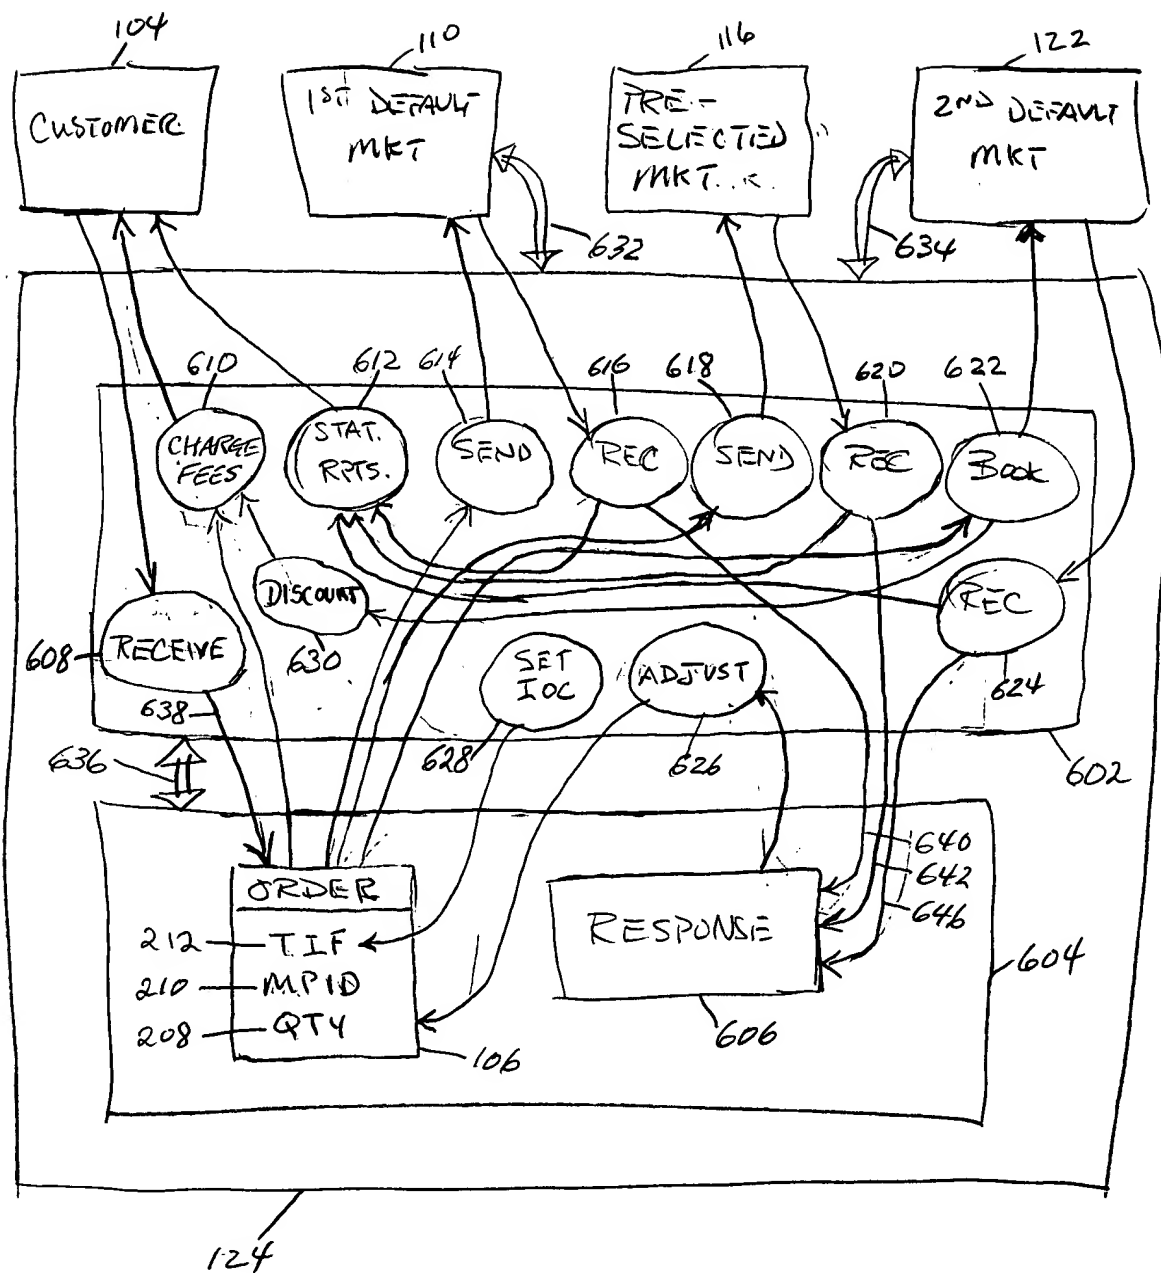 104
110
116
122
CUSTOMER
1ST DEFAULT
MKT
PRE-
SELECTED
MKT...
2ND DEFAULT
MKT
632
634
610
612
614
616
618
620
622
CHARGE
FEES
STAT.
RPTS.
SEND
REC
SEND
REC
BOOK
DISCOUNT
REC
608
RECEIVE
630
SET
IOC
ADJUST
624
638
636
628
626
602
640
642
646
ORDER
212
TIF
210
MPID
208
QTY
106
RESPONSE
606
604
124